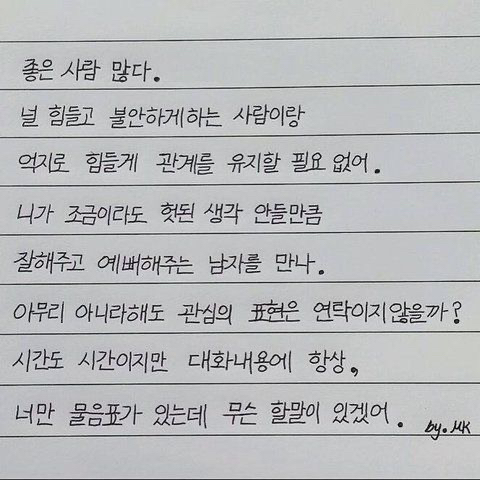 좋은 사람 많다.
널 힘들고 불안하게하는 사람이랑
억지로 힘들게 관계를 유지할 필요 없어.
니가 조금이라도 헛된 생각 안들만큼
잘해주고 예뻐해주는 남자를 만나.
아무리 아니라해도 관심의 표현은 연락이지않을까?
시간도 시간이지만 대화내용에 항상,
너만 물음표가 있는데 무슨 할말이 있겠어.
by. MK